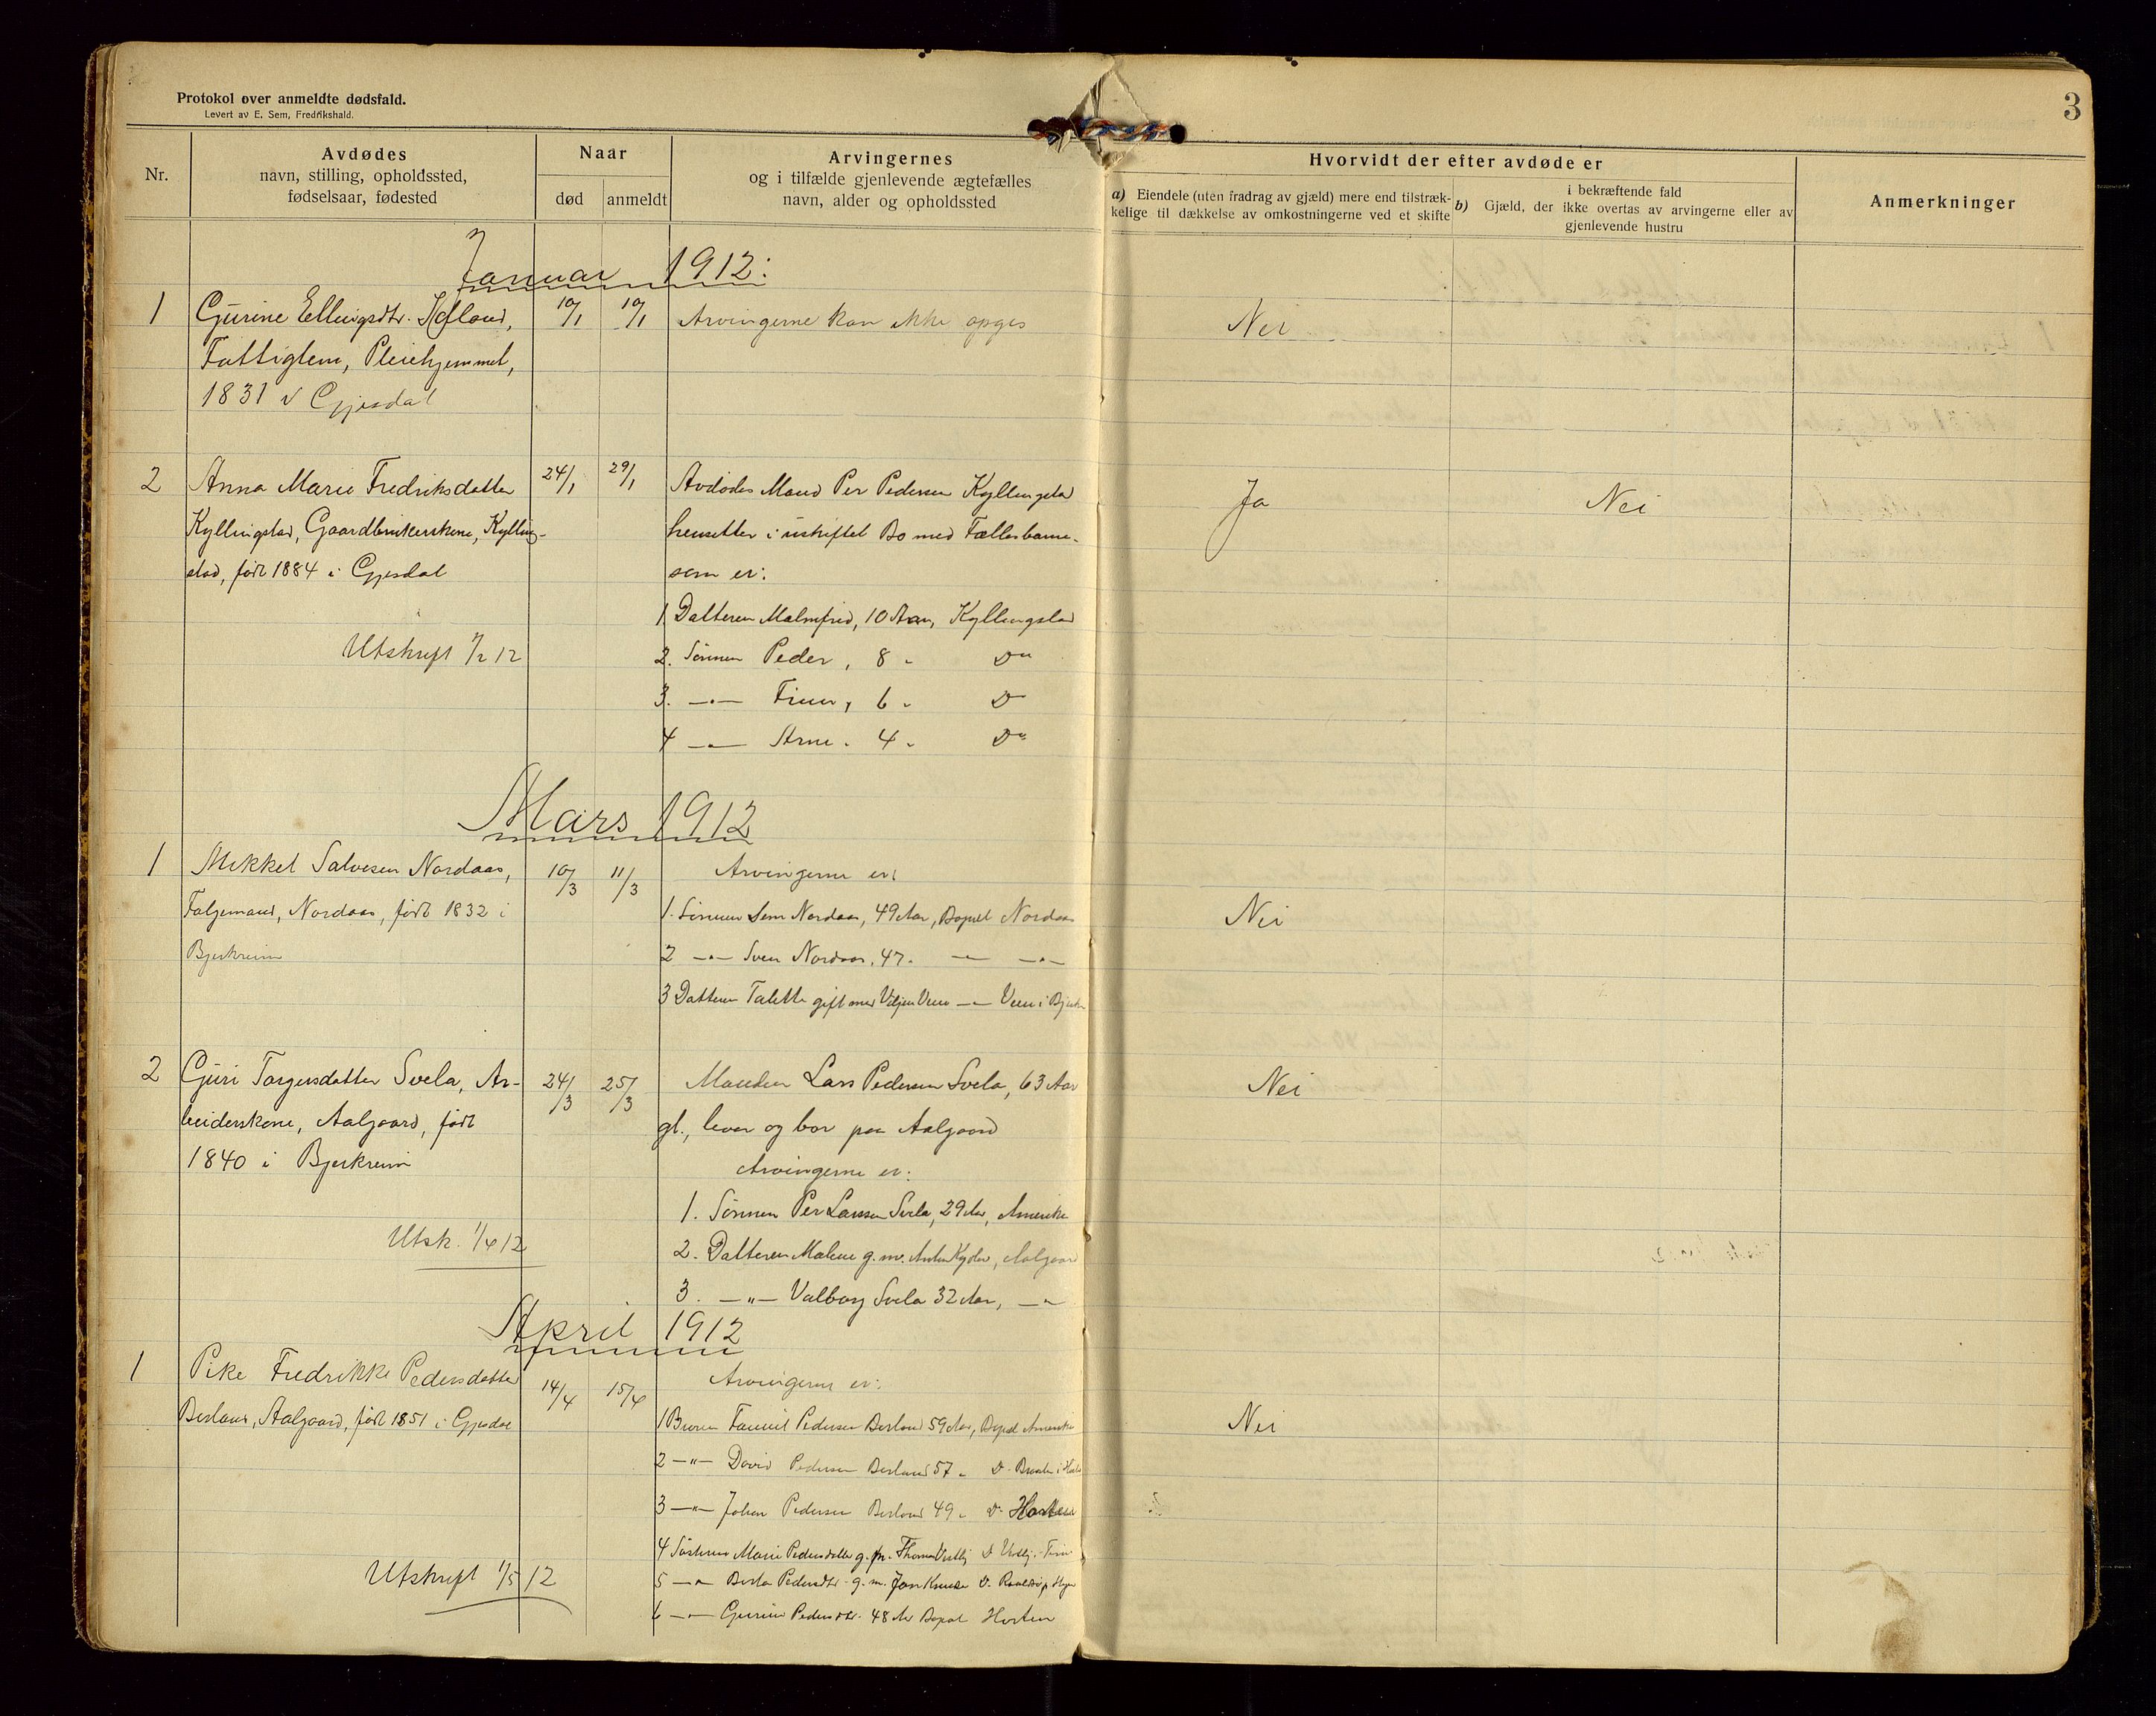 Protokol over anmeldte dødsfald.
Levert av E. Sem, Fredrikshald.
3
Nr.
Avdødes
navn, stilling, opholdssted,
fødselsaar, fødested
Naar
død
anmeldt
Arvingernes
og i tilfælde gjenlevende ægtefælles
navn, alder og opholdssted
Hvorvidt der efter avdøde er
a) Eiendele (uten fradrag av gjæld) mere end tilstræk-
kelige til dækkelse av omkostningerne ved et skifte
i bekræftende fald
b) Gjæld, der ikke overtas av arvingerne eller av
gjenlevende hustru
Anmerkninger
Januar 1912:
1 Gurine Ellingsdtr.
Fattiglem, Pleiehjemmet,
1831 i Gjesdal
10/1 10/1
Arvingerne kan ikke opges
Nei
2 Anna Marie Fredriksdatter
Kyllingstad, Gaardbrukerskone, Kylling-
stad, født 1884 i Gjesdal
Utskrift 1/2 12
24/1 29/1
Avdødes Mand Per Pedersen Kyllingstad
hensetter i uskiftet Bo med Fællesbarne
som er:
1 Datteren Malmfrid, 10 Aar, Kyllingstad
2. Sønnen Peder, 8 " Do
3. —"— Finn, 6 " Do
4 —"— Arne " 4 " Do
Ja
Nei
Mars 1912
1 Mikkel Salvesen Nordaas,
Folgemand, Nordaas, født 1832 i
Bjerkreim
10/3 11/3
Arvingerne er:
1. Sønnen Sem Nordaas, 49 Aar, Bopæl Nordaas
2 —"— Sven Nordaas, 47 " —"— —"—
3 Datteren Talette gift med Veen —"— Veen i
Nei
2 Guri Torgersdatter Svela, Ar-
beiderskone, Aalgaard, født
1840 i Bjerkreim
Utsk. 1/4 12
24/3 25/3
Manden Lars Pedersen Svela, 63 Aar
gl., lever og bor paa Aalgaard
Arvingerne er:
1. Sønnen Per Larsen Svela, 29 Aar, Amerika
2. Datteren Malene g. m. Aalgaard
3. —"— Valborg Svela 32 Aar, —"—
Nei
April 1912
1 Pike Fredrikke Pedersdatter
Berland, Aalgaard, født 1851 i Gjesdal
Utskrift 1/5 12
14/4 15/4
Arvingerne er:
1 Broren Pedersen Berland 59 Aar, Bopæl Amerika
2 —"— David Pedersen Berland 57 " D.
3 —"— Johan Pedersen Berland 49 " D.
4 Søsteren Marie Pedersdatter g. m. Thomas
5 —"— Berta Pedersdtr. g. m. Jon
6 —"— Gurine Pedersdtr. 48 Aar Bopæl Horten
Nei